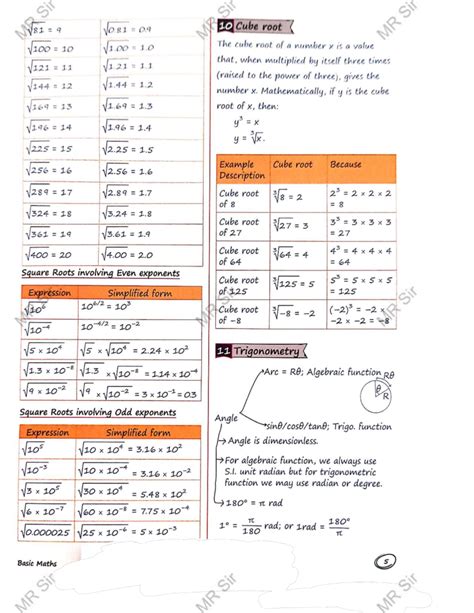 MR Sir
MR Sir
√81 = 9 √0.81 = 0.9
√100 = 10 √1.00 = 1.0
√121 = 11 √1.21 = 1.1
√144 = 12 √1.44 = 1.2
√169 = 13 √1.69 = 1.3
√196 = 14 √1.96 = 1.4
√225 = 15 √2.25 = 1.5
√256 = 16 √2.56 = 1.6
√289 = 17 √2.89 = 1.7
√324 = 18 √3.24 = 1.8
√361 = 19 √3.61 = 1.9
√400 = 20 √4.00 = 2.0
Square Roots involving Even exponents
Expression Simplified form
√10⁶ 10^(6/2) = 10³
√10⁻⁴ 10^(-4/2) = 10⁻²
√5 × 10⁴ √5 × √10⁴ = 2.24 × 10²
√1.3 × 10⁻⁸ √1.3 × √10⁻⁸ = 1.14 × 10⁻⁴
√9 × 10⁻² √9 × √10⁻² = 3 × 10⁻¹ = 0.3
Square Roots involving Odd exponents
Expression Simplified form
√10⁵ √10 × 10⁴ = 3.16 × 10²
√10⁻³ √10 × 10⁻⁴ = 3.16 × 10⁻²
√3 × 10⁵ √30 × 10⁴ = 5.48 × 10²
√6 × 10⁻⁷ √60 × 10⁻⁸ = 7.75 × 10⁻⁴
√0.000025 √25 × 10⁻⁶ = 5 × 10⁻³
Basic Maths
10 Cube root
The cube root of a number x is a value
that, when multiplied by itself three times
(raised to the power of three), gives the
number x. Mathematically, if y is the cube
root of x, then:
y³ = x
y = ∛x.
Example Description Cube root Because
Cube root of 8 ∛8 = 2 2³ = 2 × 2 × 2 = 8
Cube root of 27 ∛27 = 3 3³ = 3 × 3 × 3 = 27
Cube root of 64 ∛64 = 4 4³ = 4 × 4 × 4 = 64
Cube root of 125 ∛125 = 5 5³ = 5 × 5 × 5 = 125
Cube root of -8 ∛-8 = -2 (-2)³ = -2 × -2 × -2 = -8
11 Trigonometry
Arc = Rθ; Algebraic function
Rθ
θ
R
Angle
sinθ/cosθ/tanθ; Trigo. function
Angle is dimensionless.
For algebraic function, we always use
S.I. unit radian but for trigonometric
function we may use radian or degree.
180° = π rad
1° = π/180 rad; or 1rad = 180°/π
5
MR Sir
MR Sir
MR Sir
MR Sir
MR Sir
MR Sir